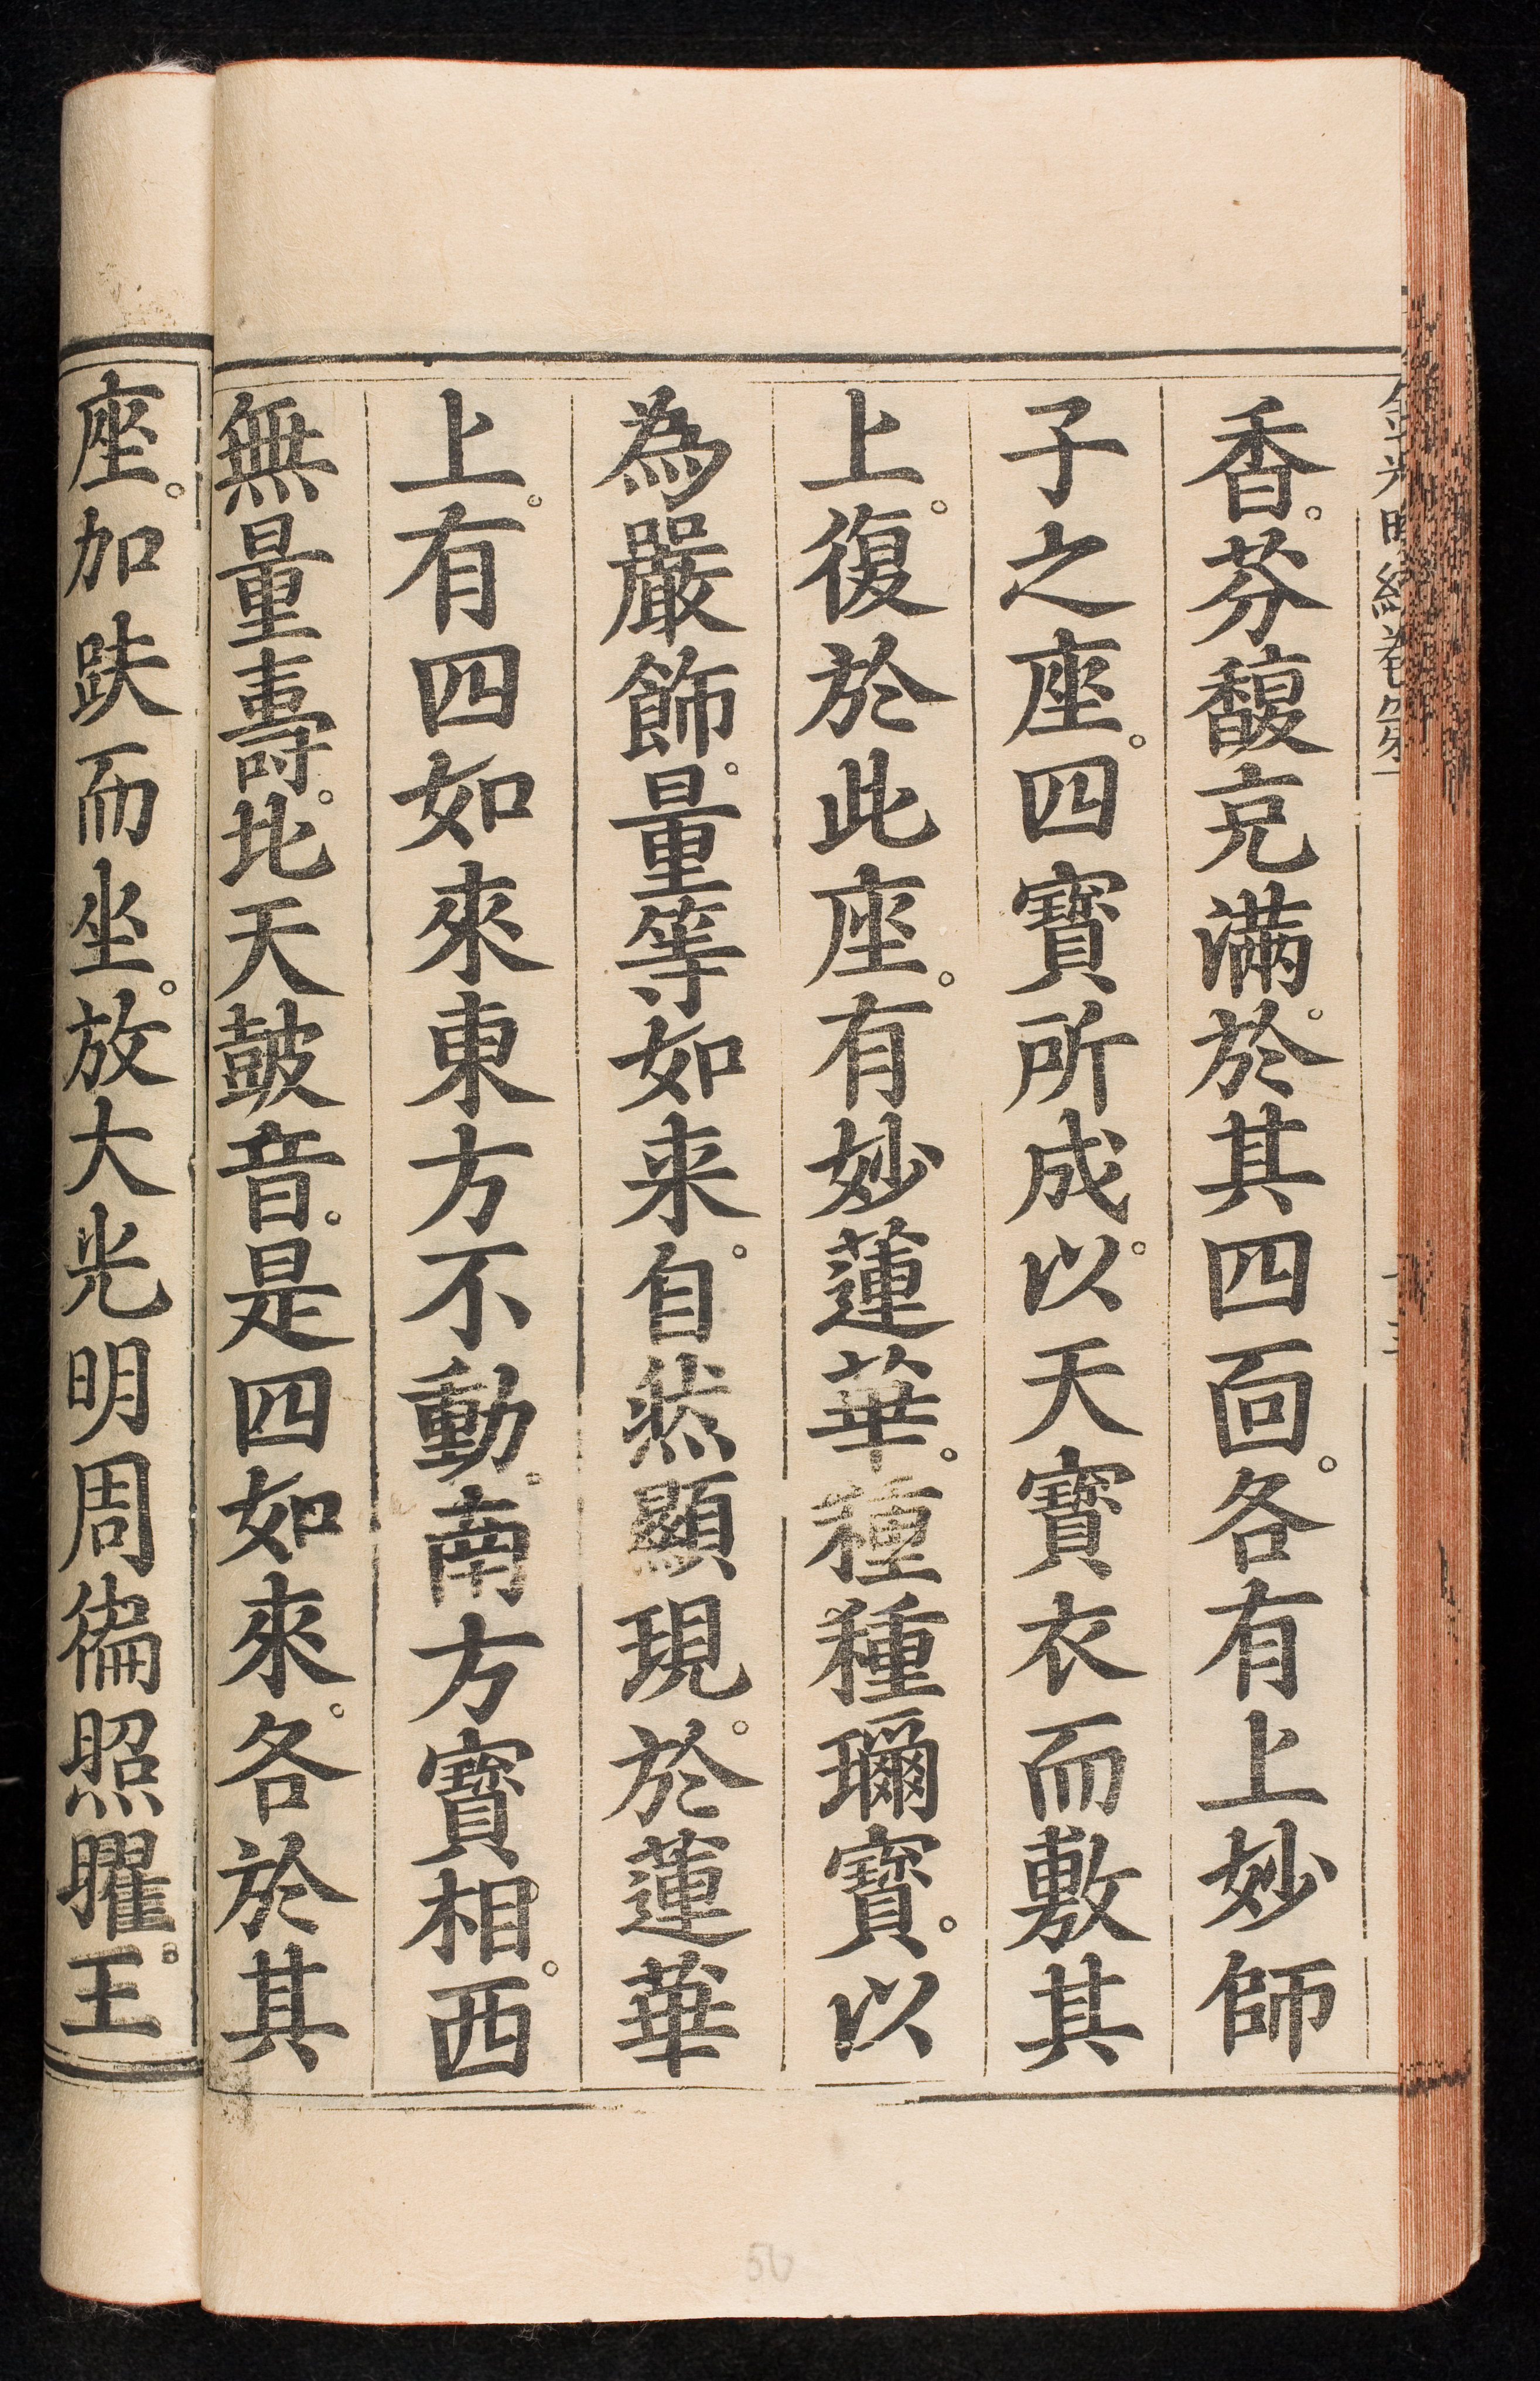 金光明經卷第一
香。芬馥充滿。於其四面。各有上妙師
子之座。四寶所成。以天寶衣而敷其
上。復於此座。有妙蓮華。種種珎寶。以
為嚴飾。量等如来。自然顯現。於蓮華
上。有四如來東方不動。南方寶相。西
無量壽。北天鼓音。是四如來。各於其
座。加趺而坐。放大光明周徧照曜。王
50